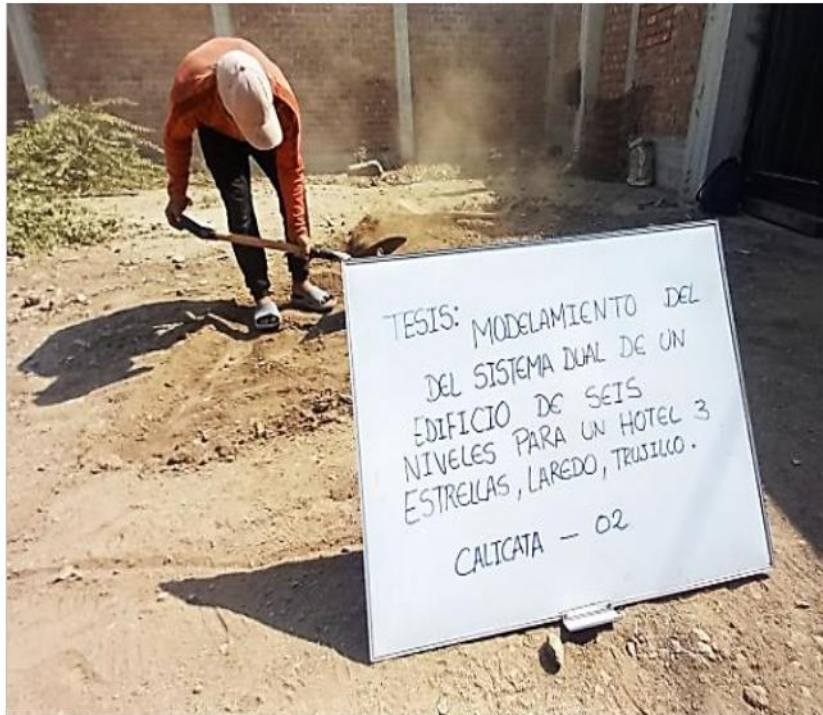 TESIS: MODELAMIENTO DEL
DEL SISTEMA DUAL DE UN
EDIFICIO DE SEIS
NIVELES PARA UN HOTEL 3
ESTRELLAS, LAREDO, TRUJILLO.
CALICATA - 02